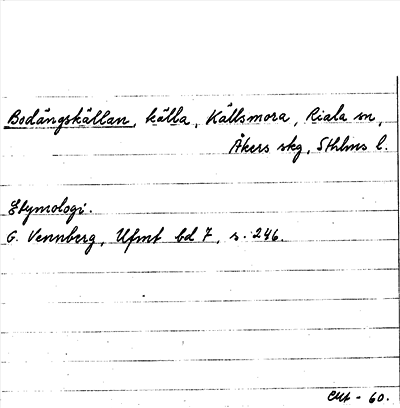 Bodängskällan, källa, Källsmora, Riala sn,
Åkers skg, Sthlms l.
Etymologi.
G. Vennberg, Ufmt bd 7, s. 246.
- 60.